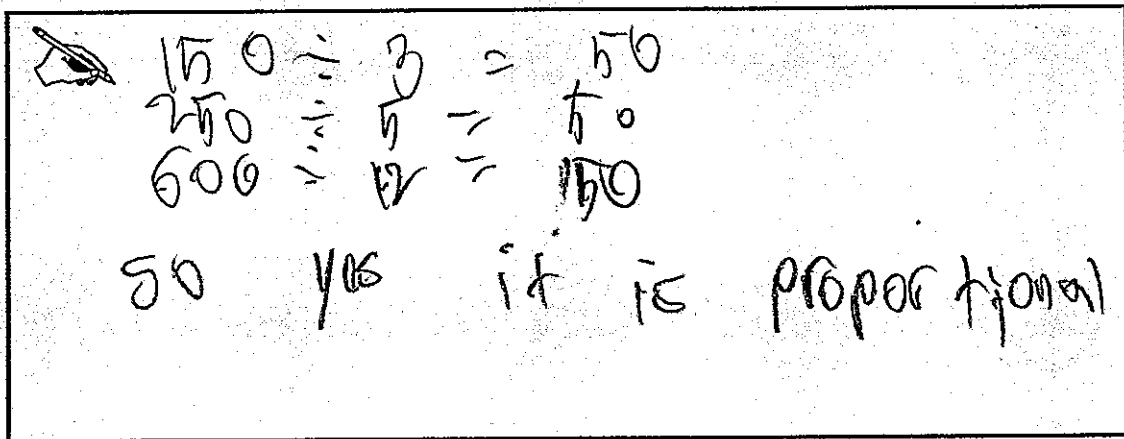 150 ÷ 3 = 50
250 ÷ 5 = 50
600 ÷ 12 = 50
so yes it is proportional